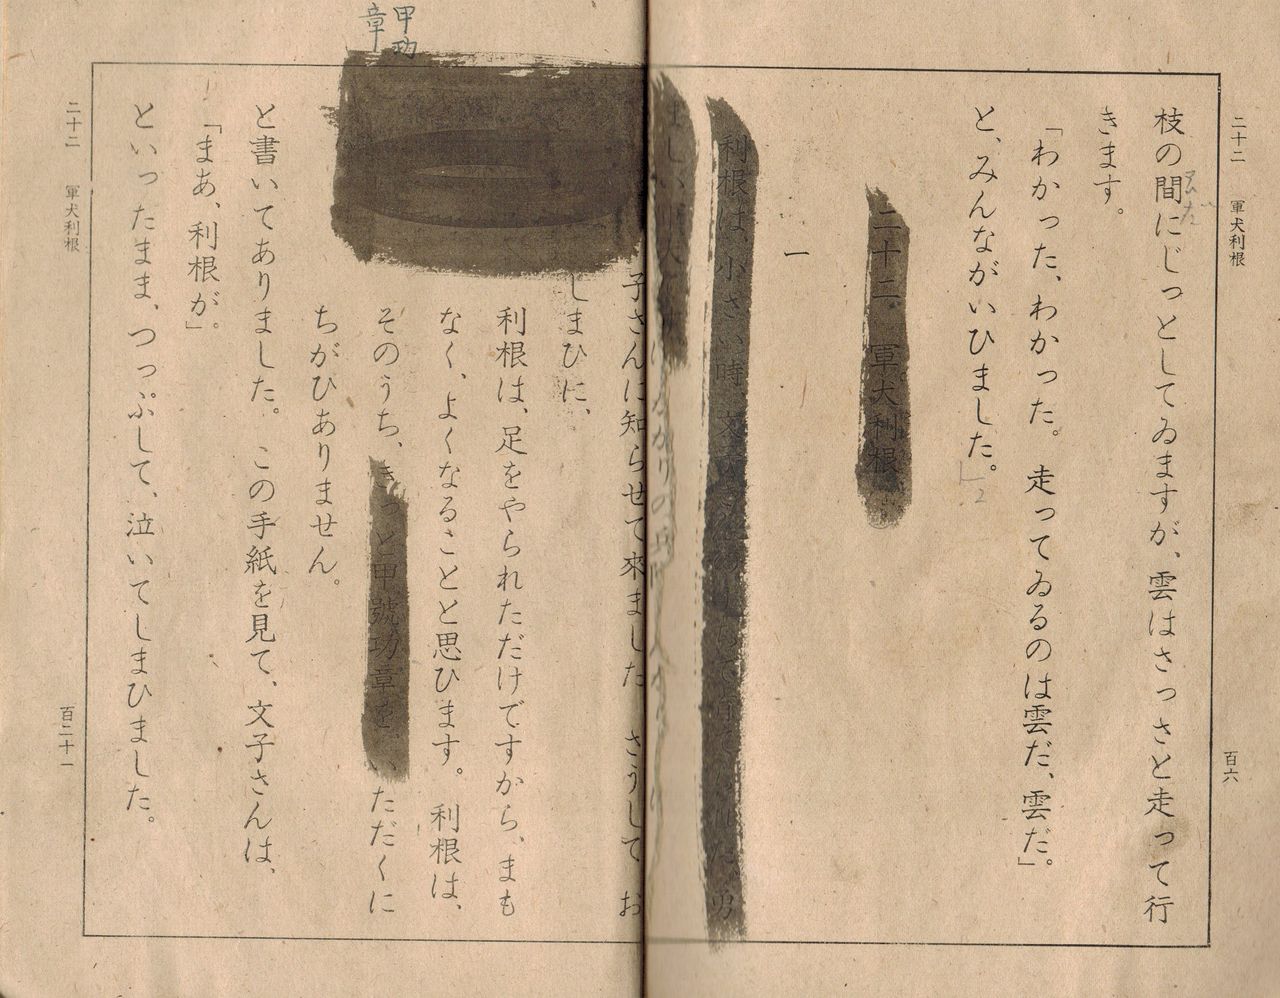 二十二 軍犬利根
百六
枝の間にじっとしてゐますが、雲はさっさと走って行
きます。
「わかった、わかった。走ってゐるのは雲だ、雲だ。」
と、みんながいひました。
二十二 軍犬利根
一
利根は、小さい時、文
子さんに知らせて來ました さうして お
しまひに、
利根は、足をやられただけですから、まも
なく、よくなることと思ひます。利根は、
そのうち、きっと甲號功章をいただくに
ちがひありません。
と書いてありました。この手紙を見て、文子さんは、
「まあ、利根が」。
といったまま、つっぷして、泣いてしまひました。
甲功
章
二十二 軍犬利根
百二十一